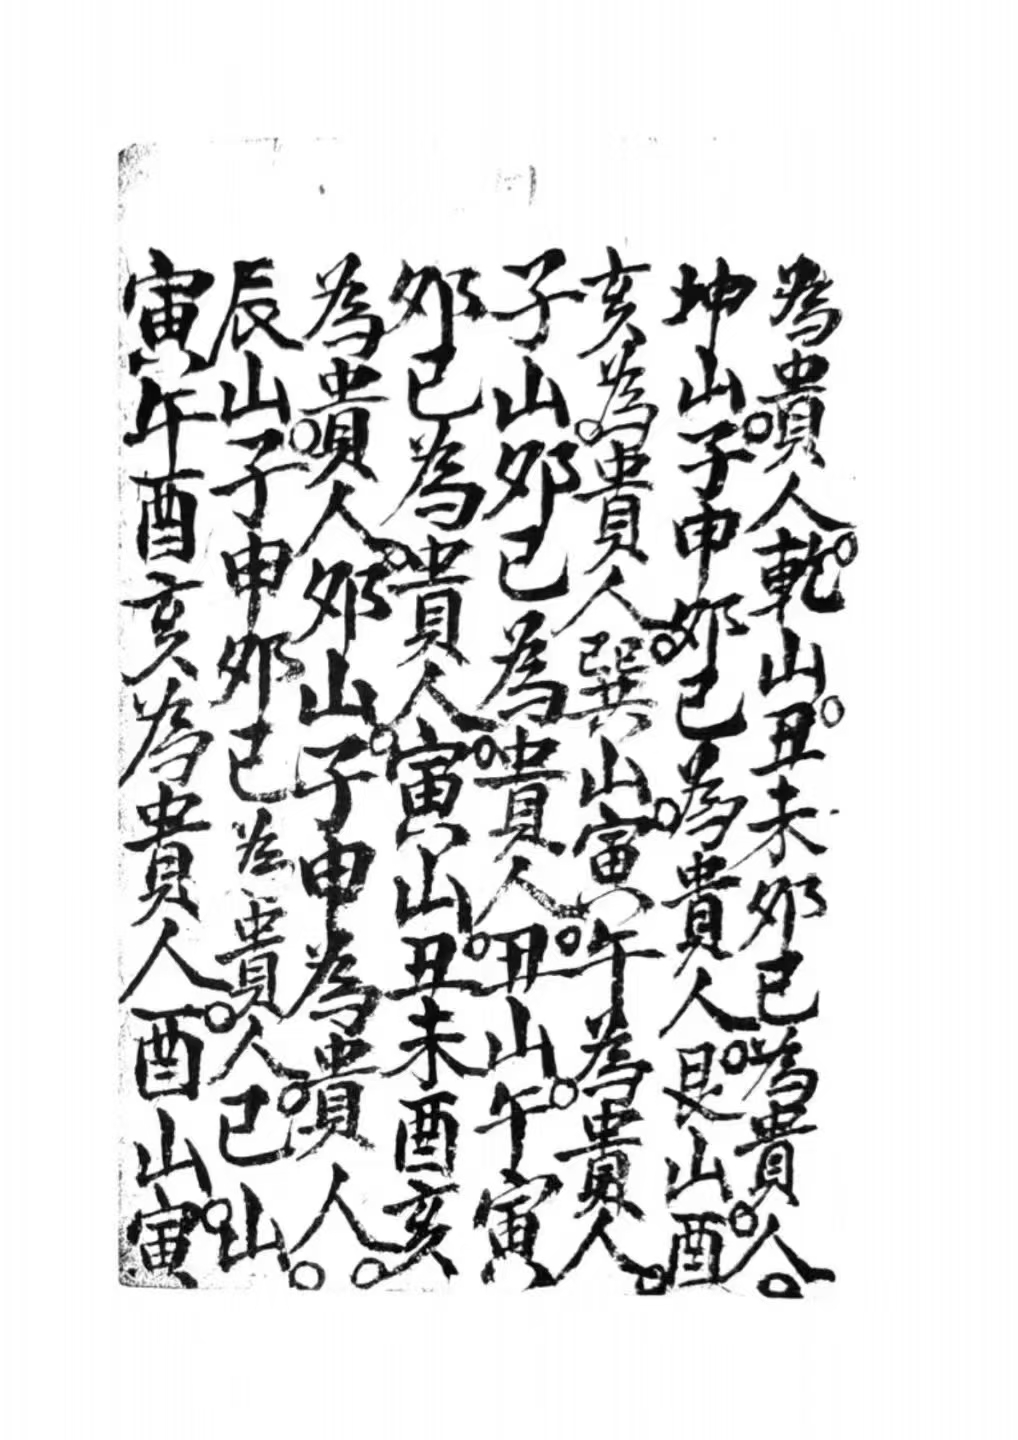 為貴人乾山丑未卯巳為貴人
坤山子申卯巳為貴人艮山酉
亥為貴人巽山寅午為貴人
子山卯巳為貴人丑山午寅
卯巳為貴人寅山丑未酉亥
為貴人卯山子申為貴人
辰山子申卯巳為貴人巳山
寅午酉亥為貴人酉山寅